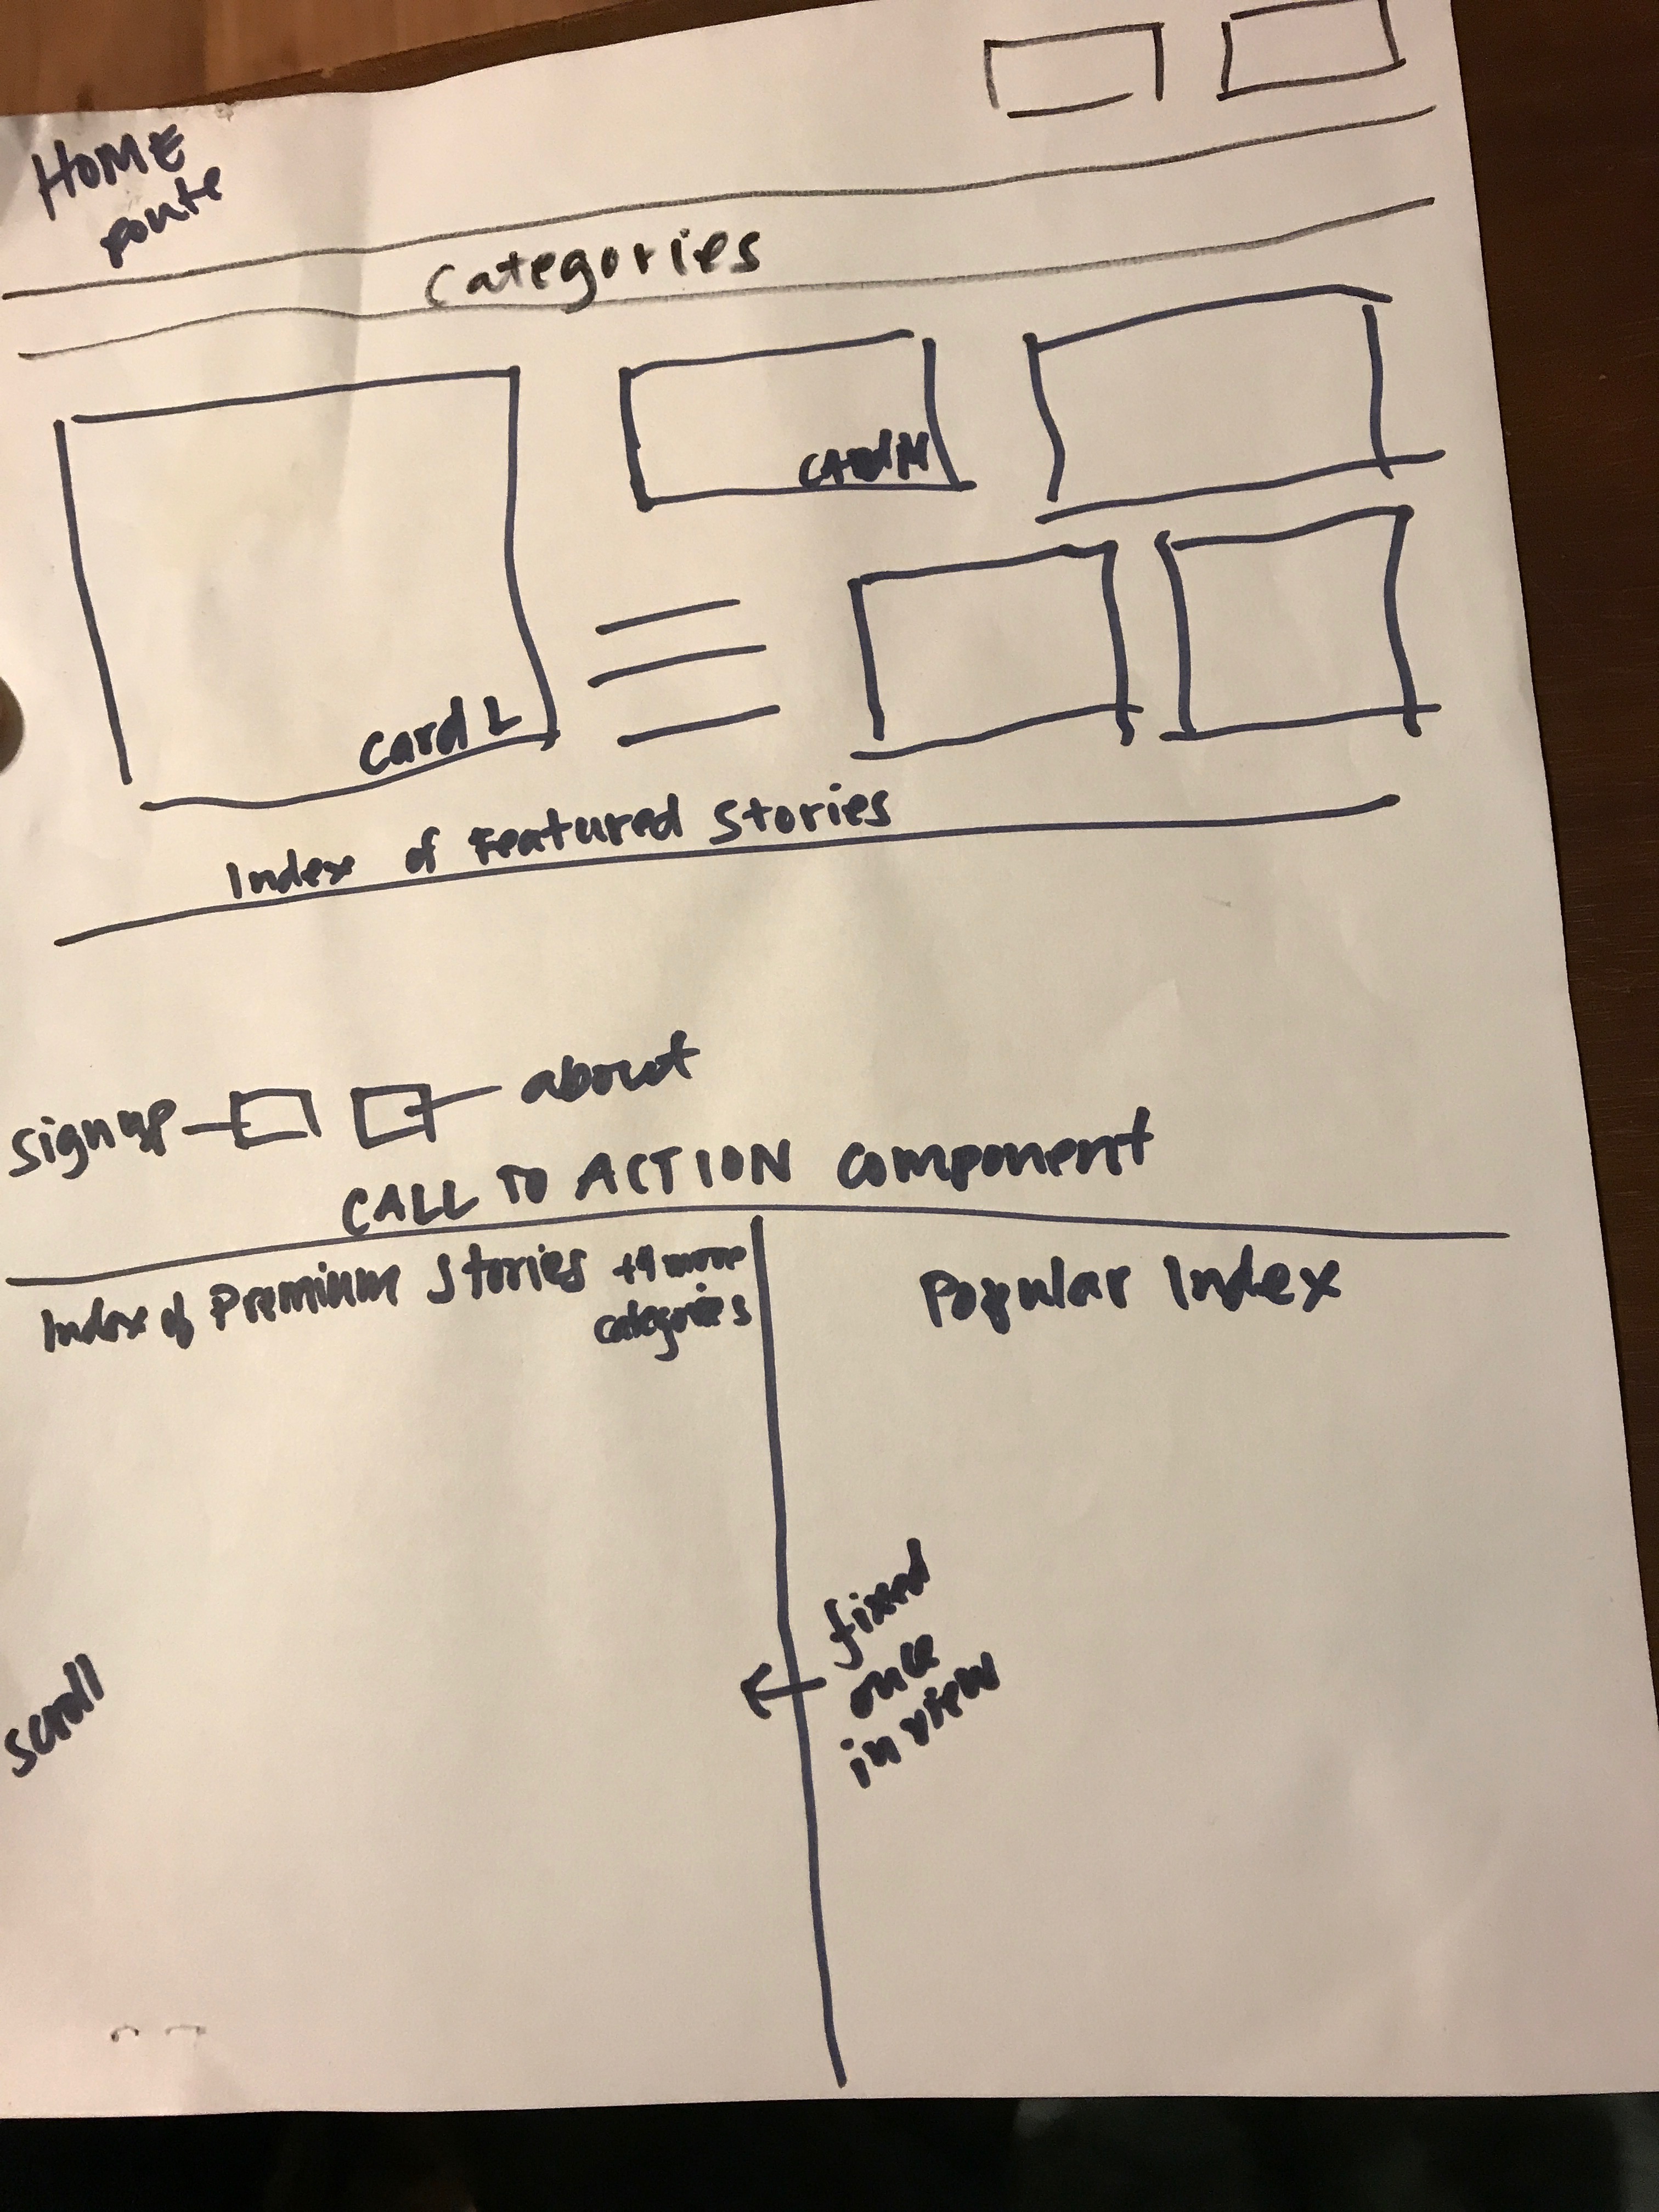 HOME
route
Categories
CARd M
Card L
Index of Featured Stories
signup
about
CALL TO ACTION component
Index of Premium Stories +4 more
categories
Popular Index
fixed
once
in view
scroll